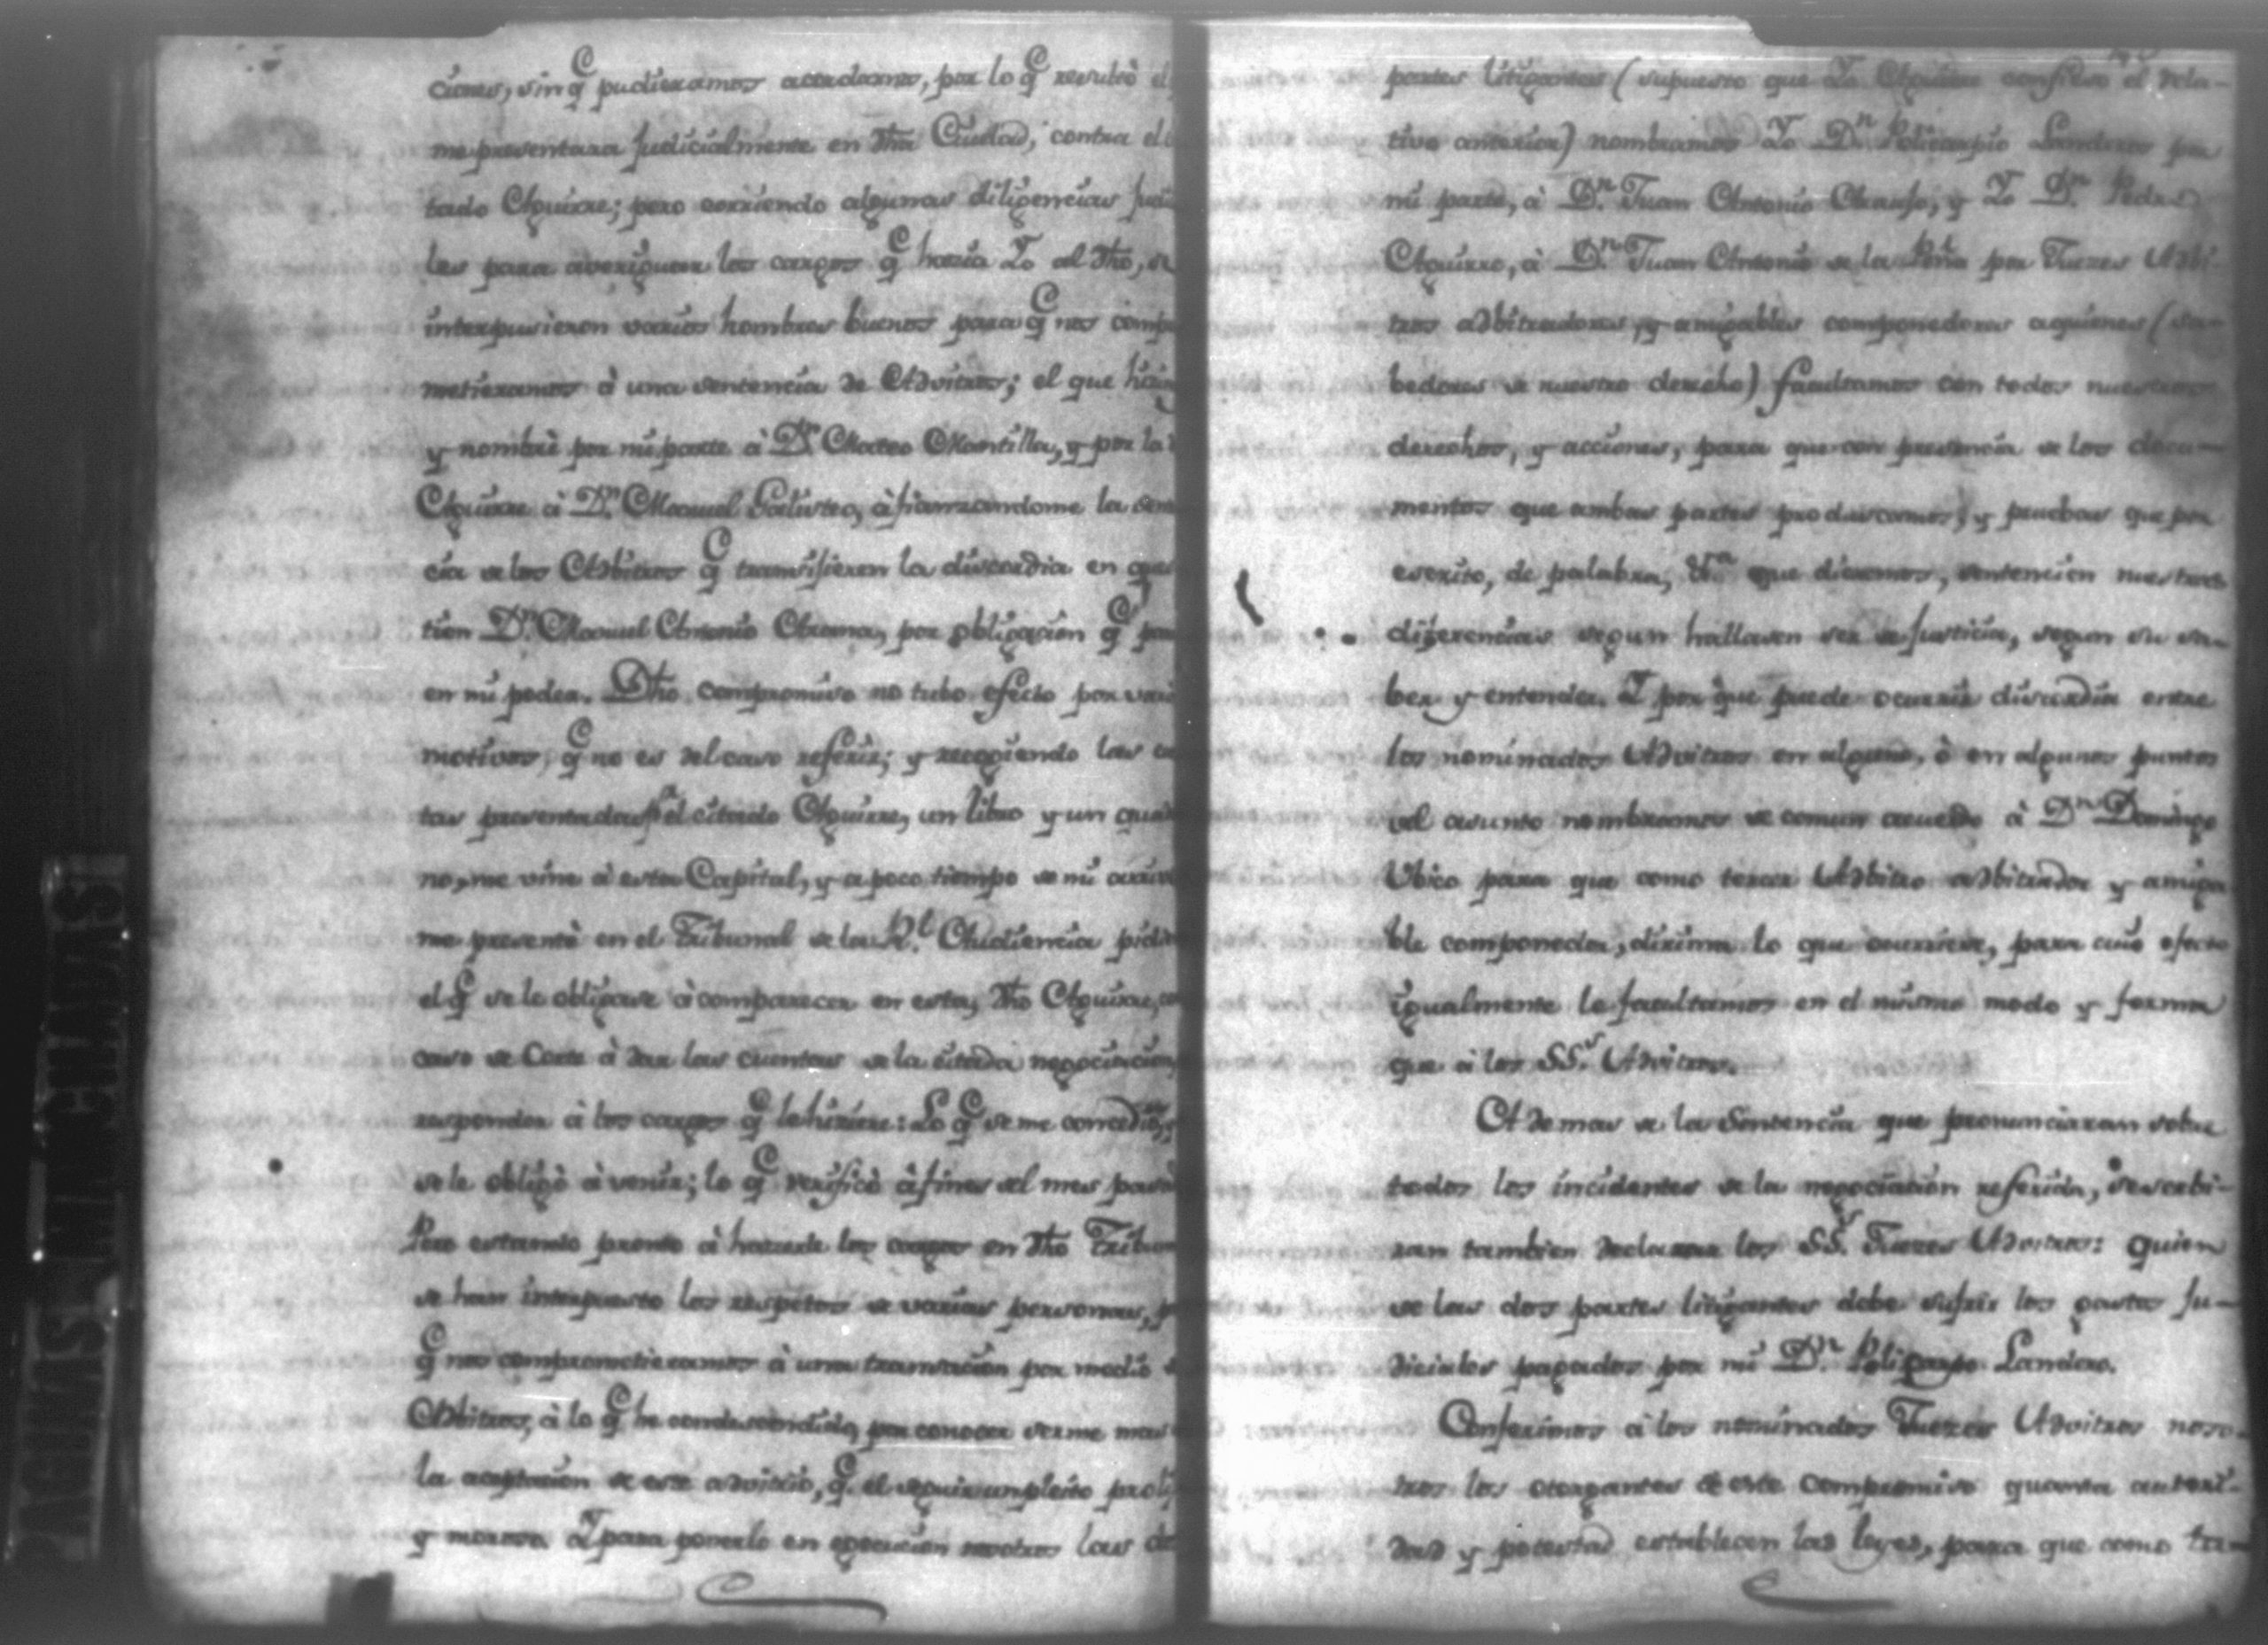 ciones, sin q̃ pudieramos acordarnos, por lo q̃ resultò el
me presentara judicialmente en dħa Ciudad, contra el
tado Aguirre; pero corriendo algunas diligencias
les para averiguar los cargos q̃ hacia Yo al dħo, se
interpusieron varios hombres buenos para q̃ nos compro
metieramos à una sentencia de Advitros; el que
y nombrè por mi parte à Dn. Mateo Mantilla, y por la
Aguirre à Dn. Manuel Galisteo, àfianzandome la sen
cia de los Adbitros q̃ transisieren la discordia en ques
tion Dn. Manuel Antonio Arana, por obligacion q̃ para
en mi poder. Dħo compromiso no tubo efecto por vari
motivos, q̃ no es del caso referir; y recogiendo las cu
tas presentadas pr el citado Aguirre, un libro y un quader
no, me vine à esta Capital, y a poco tiempo de mi arrivo
me presentè en el Tribunal de la Rl. Audiencia pidien
el q̃ se le obligase à comparecer en esta, dħo Aguirre,
caso de Corte à dar las cuentas de la citada negociacion,
responder à los cargos q̃ le hiciere: Lo q̃ se me concediò, y
se le obligò à venir; lo q̃ verificò à fines del mes pasad
Pero estando pronto à hacerle los cargos en dħo Tribun
se han interpuesto los respetos de varias personas, p
q̃ nos comprometieramos à una transacion por medio d
Adbitros, à lo q̃ he condescendido, por conocer serme mas
la aceptacion de este advitrio, q̃. el seguir un pleito proli
y moroso. Y para ponerlo en egecucion nosotros las dos
partes litigantes (supuesto que Yo Aguirre confieso el rela-
tivo anterior) nombramos Yo Dn. Policarpio Landero por
mi parte, à Dn. Juan Antonio Araujo, y Yo Dn. Pedro
Aguirre, à Dn. Juan Antonio de la Peña por Jueces Adbi-
tros adbitradores, y amigables componedores aquienes (sa-
bedores de nuestro derecho) facultamos con todos nuestros
derechos, y acciones, para que con presencia de los docu-
mentos que ambas partes produscamos, y pruebas que por
escrito, de palabra, &a. que dieremos, sentencien nuestras
diferencias segun hallasen ser de justicia, segun su sa-
ber y entender. Y por que puede ocurrir discordia entre
los nominados Advitros en alguno, ò en algunos puntos
del asunto nombramos de comun acuerdo à Dn Domingo
Ubico para que como tercer Adbitro adbitrador y amiga
ble componedor, dirima lo que ocurriere, para cuio efecto
igualmente le facultamos en el mismo modo y forma
que à los SS.s Advitros.
Ademas de la Sentencia que pronunciaran sobre
todos los incidentes de la negociacion referida, deverbi-
ran tambien declarar los SS.s Jueces Advitros: quien
de las dos partes litigantes debe sufrir los gastos ju-
diciales pagados por mi Dn. Policarpo Landero.
Conferimos à los nominados Jueces Advitros noso-
tros los otorgantes de este compromiso quanta autori-
dad y potestad establecen las leyes, para que como tra-
PAGINAS MANCHADAS